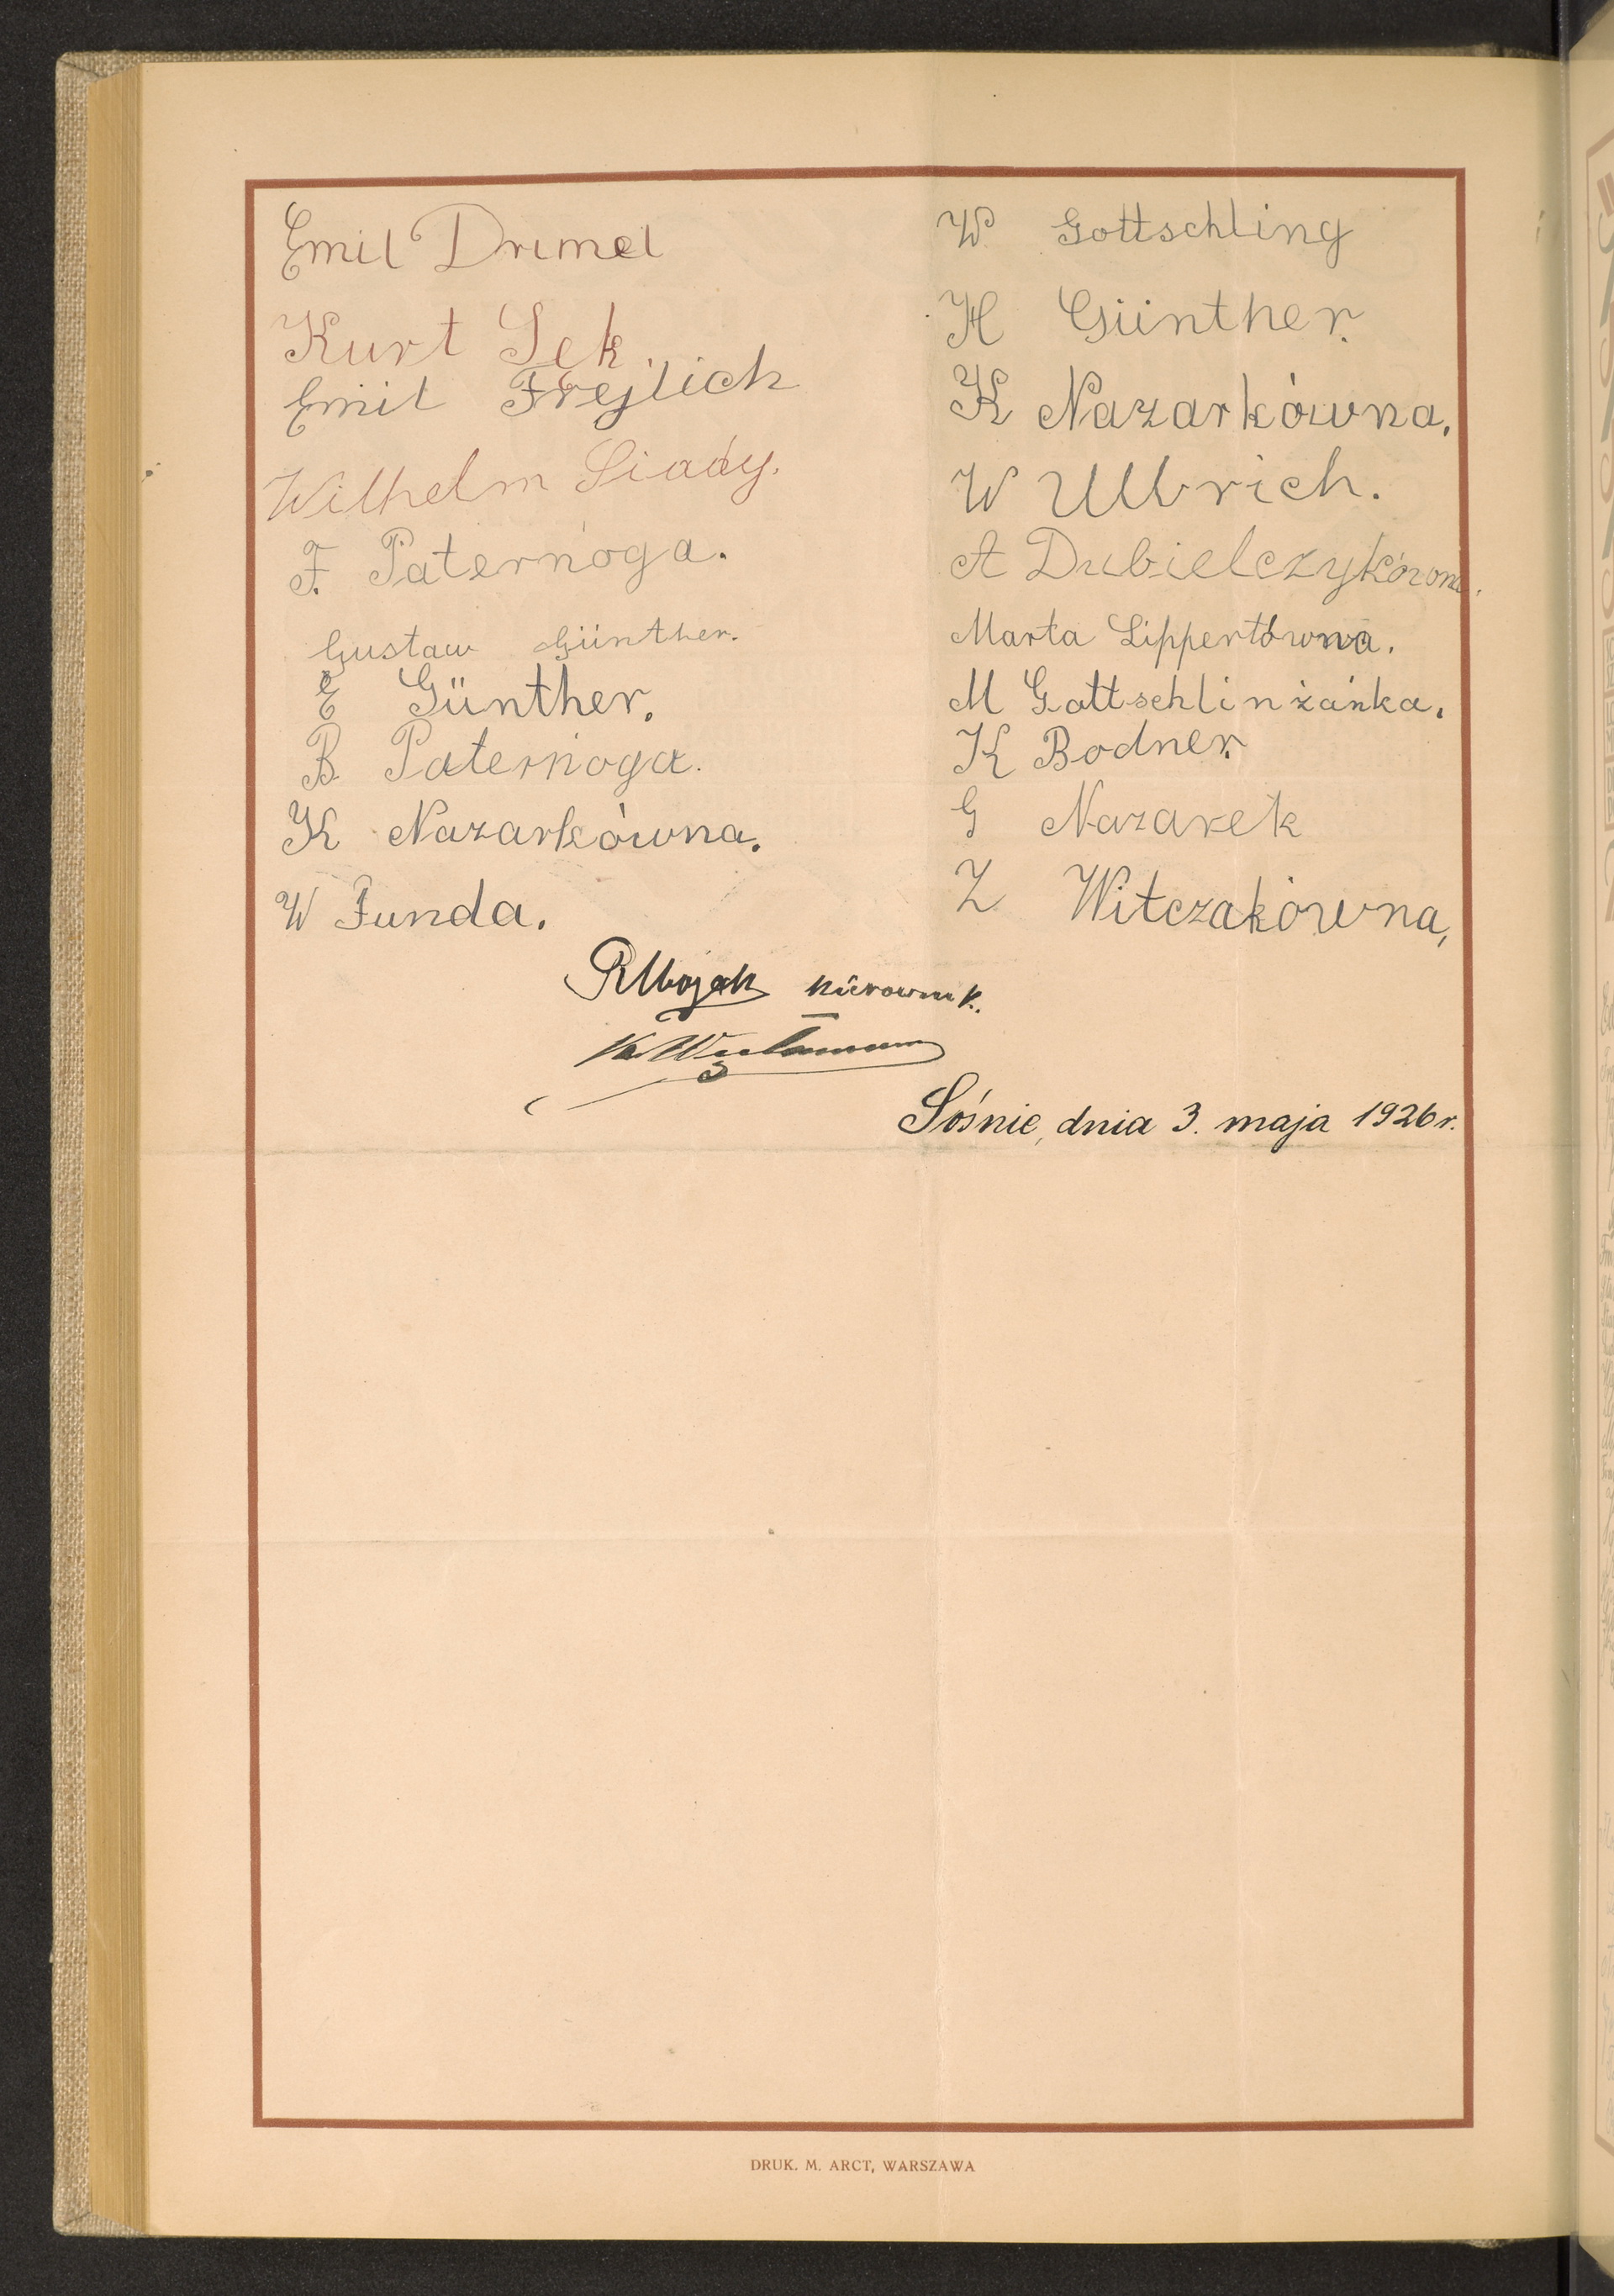 Emil Drimel
Kurt Sek.
Emil Frejlich
Wilhelm Siady.
F. Paternoga.
Gustaw Günther.
E Günther.
B Paternoga.
K Nazarkówna.
W Funda.
W. Gottschling
H Günther.
K Nazarkówna.
W Ullrich.
A Dubielczykówna.
Marta Lippertówna.
M Gottschlinżanka.
K Bodner.
G Nazarek
Z Witczakówna,
kierownik.
Sośnie, dnia 3. maja 1926 r.
DRUK. M. ARCT, WARSZAWA